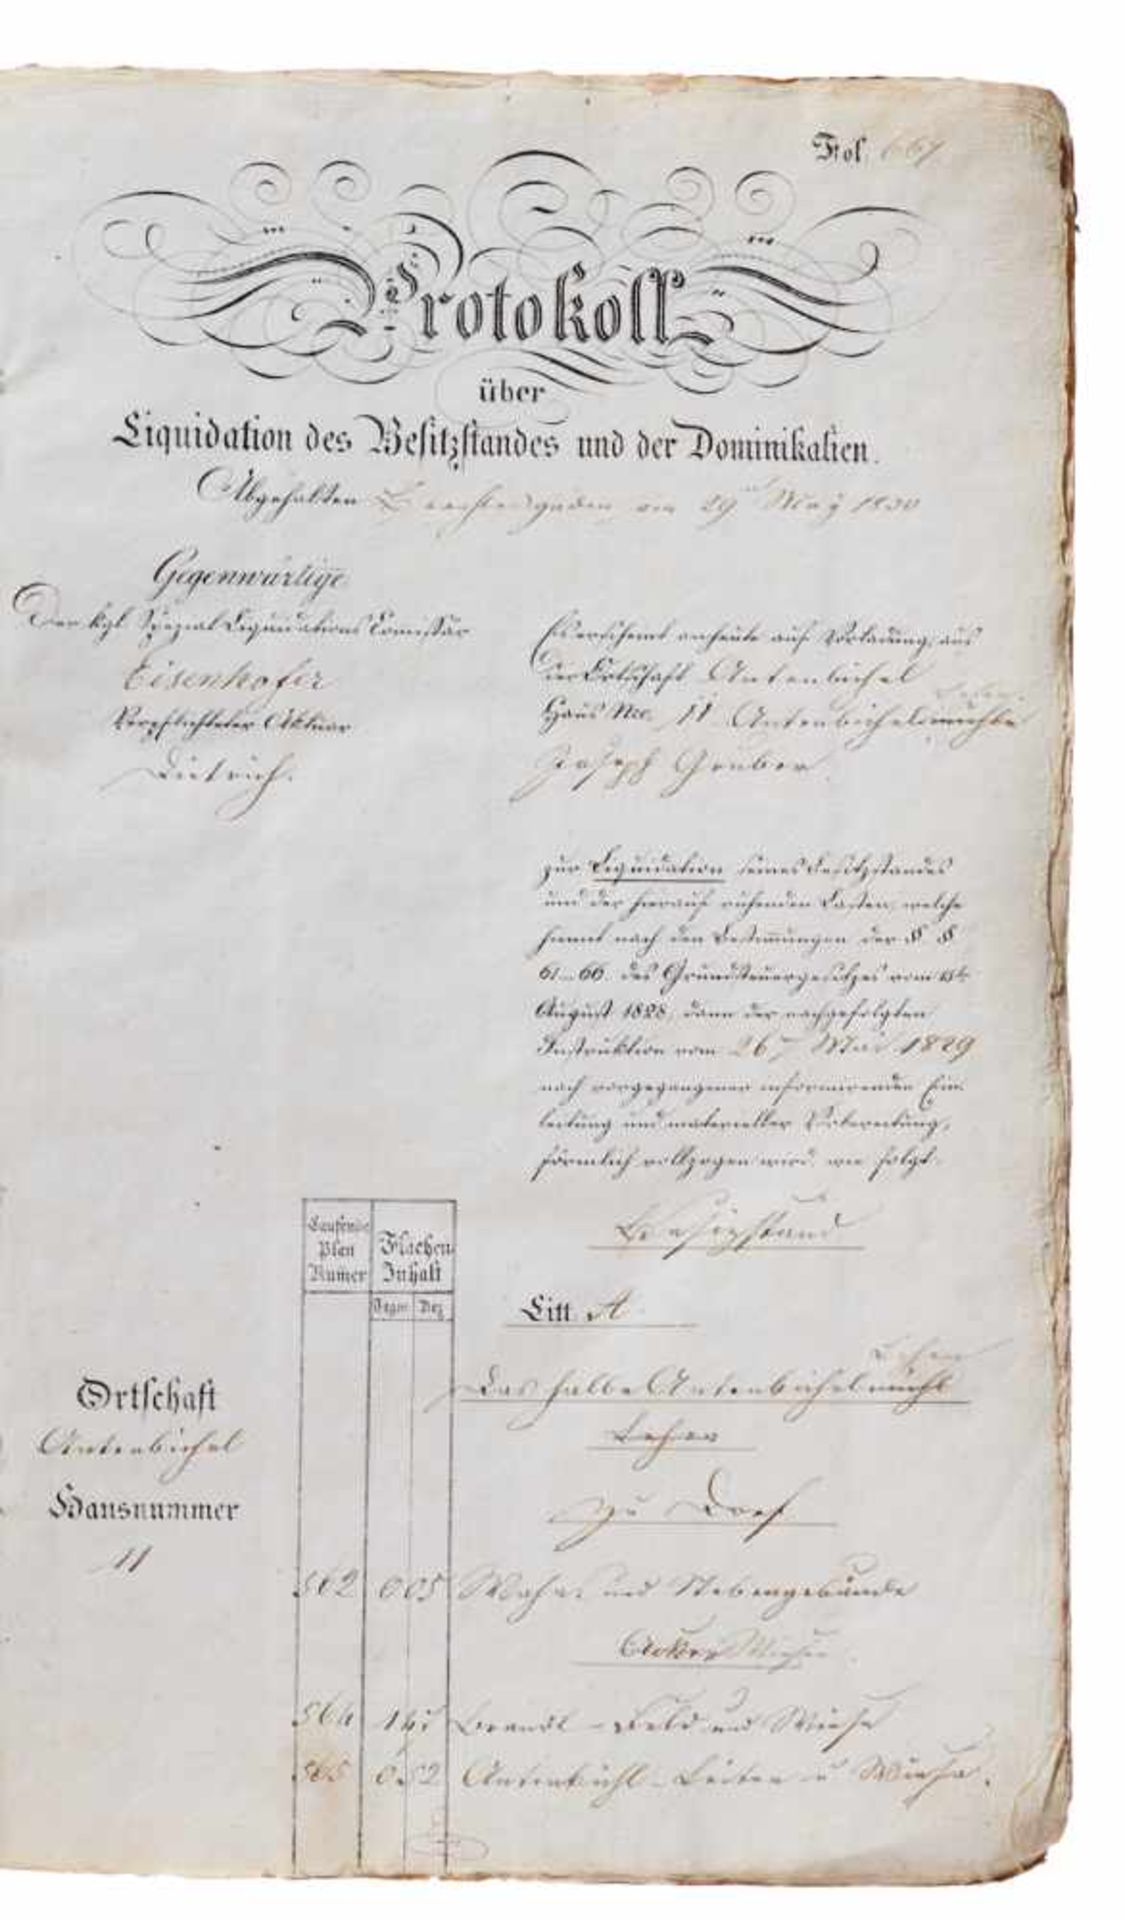 Fol. 667
Protokoll
über
Liquidation des Besitzstandes und der Dominikalien.
Abgehalten Berchtesgaden am 29ten May 1830
Gegenwärtige
Der kgl. Spezial Liquidations Comißär
Eisenhofer
Verpflichteter Aktuar
Dietrich.
Es erscheint anheute auf Vorladung, aus
der Ortschaft Antenbichel
Haus Nro. 11 Antenbichel
Joseph Gruber.
zur Liquidation seines Besitzstandes
und der hierauf ruhenden Lasten, welche
hiemit nach den Bestimmungen der § §
61–66 des Grundsteuergesetzes vom 15t.
August 1828, dann der nachgefolgten
Instruktion vom Mai 1829
nach vorgegangener informirenden Ein-
leitung und materieller Vorbereitung,
förmlich vollzogen wird, wie folgt.
Besitzstand
Laufende Plan Numer
Flächen Inhalt
Tagw. Dez.
Litt. A
Das halbe Antenbichel
Lehen
zu Dorf
Ortschaft
Antenbichel
Hausnummer
11
562 0 05 Wohn- und Nebengebäude
Acker Wiesen
564 Brandl-Feld und Wiese
565 Antenbichl-Leiten u Wiese.